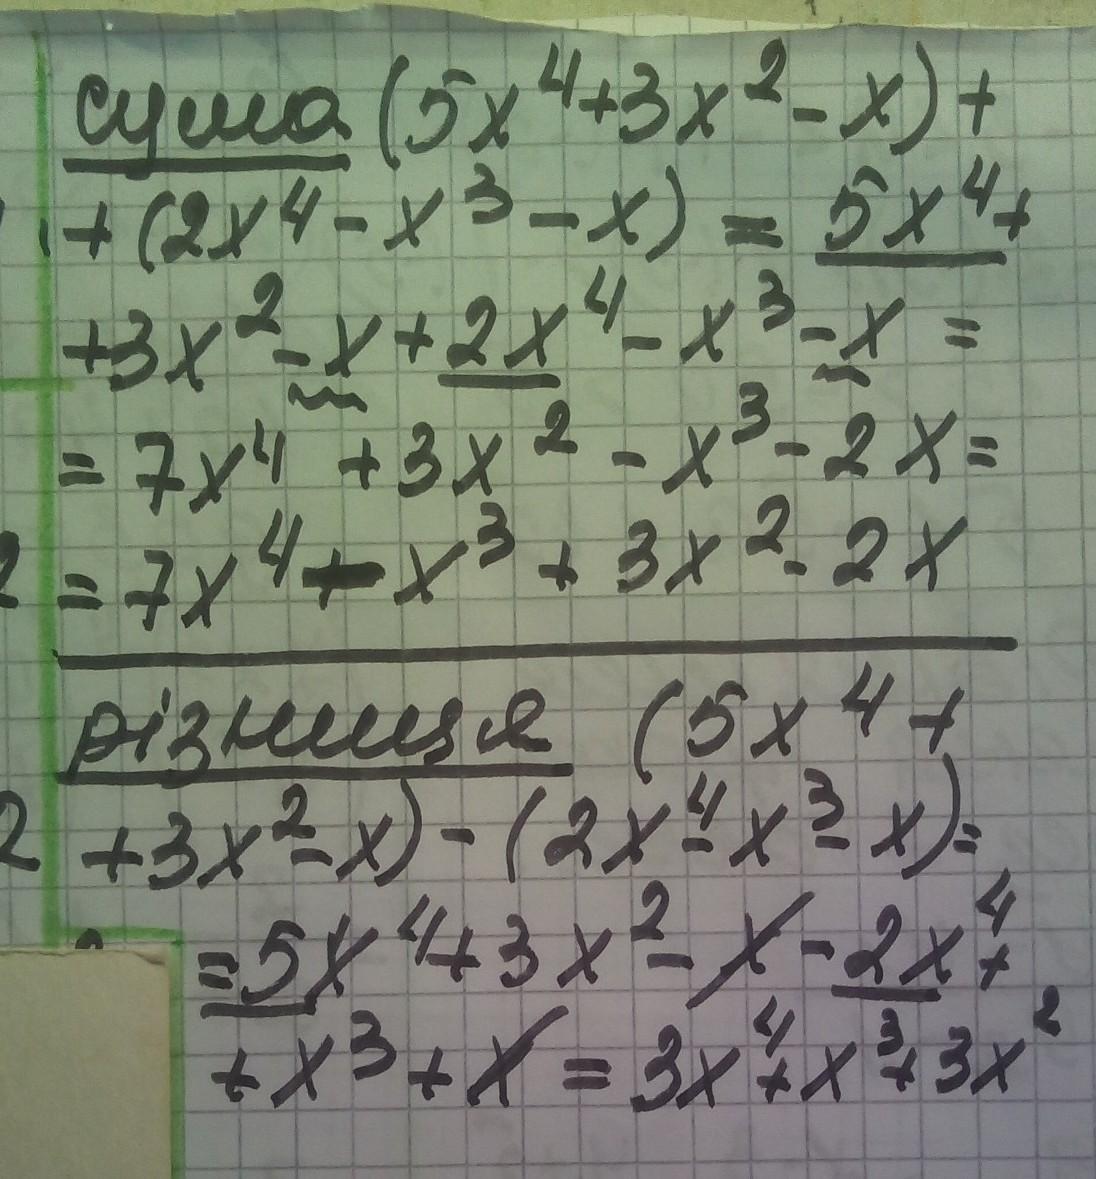 сума (5x⁴+3x²-x)+
+(2x⁴-x³-x)=5x⁴+
+3x²-x+2x⁴-x³-x=
=7x⁴+3x²-x³-2x=
=7x⁴-x³+3x²-2x
різниця (5x⁴+
+3x²-x)-(2x⁴-x³-x)=
=5x⁴+3x²-x-2x⁴+
+x³+x=3x⁴+x³+3x²